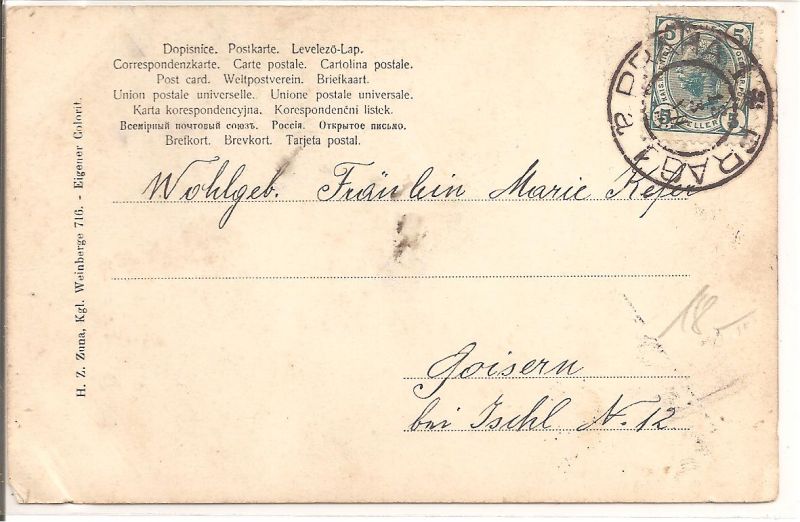 Dopisnice. Postkarte. Levelező-Lap.
Correspondenzkarte. Carte postale. Cartolina postale.
Post card. Weltpostverein. Briefkaart.
Union postale universelle. Unione postale universale.
Karta korespondencyjna. Korespondenční lístek.
Всемірный почтовый союзъ. Россія. Открытое письмо.
Brefkort. Brevkort. Tarjeta postal.
Wohlgeb. Fräulein Marie Kefer
Goisern
bei Ischl N. 12
H. Z. Zuna, Kgl. Weinberge 716. - Eigener Colorit.
5 5
5 HELLER 5
PRAHA 1
PRAG 1
18-